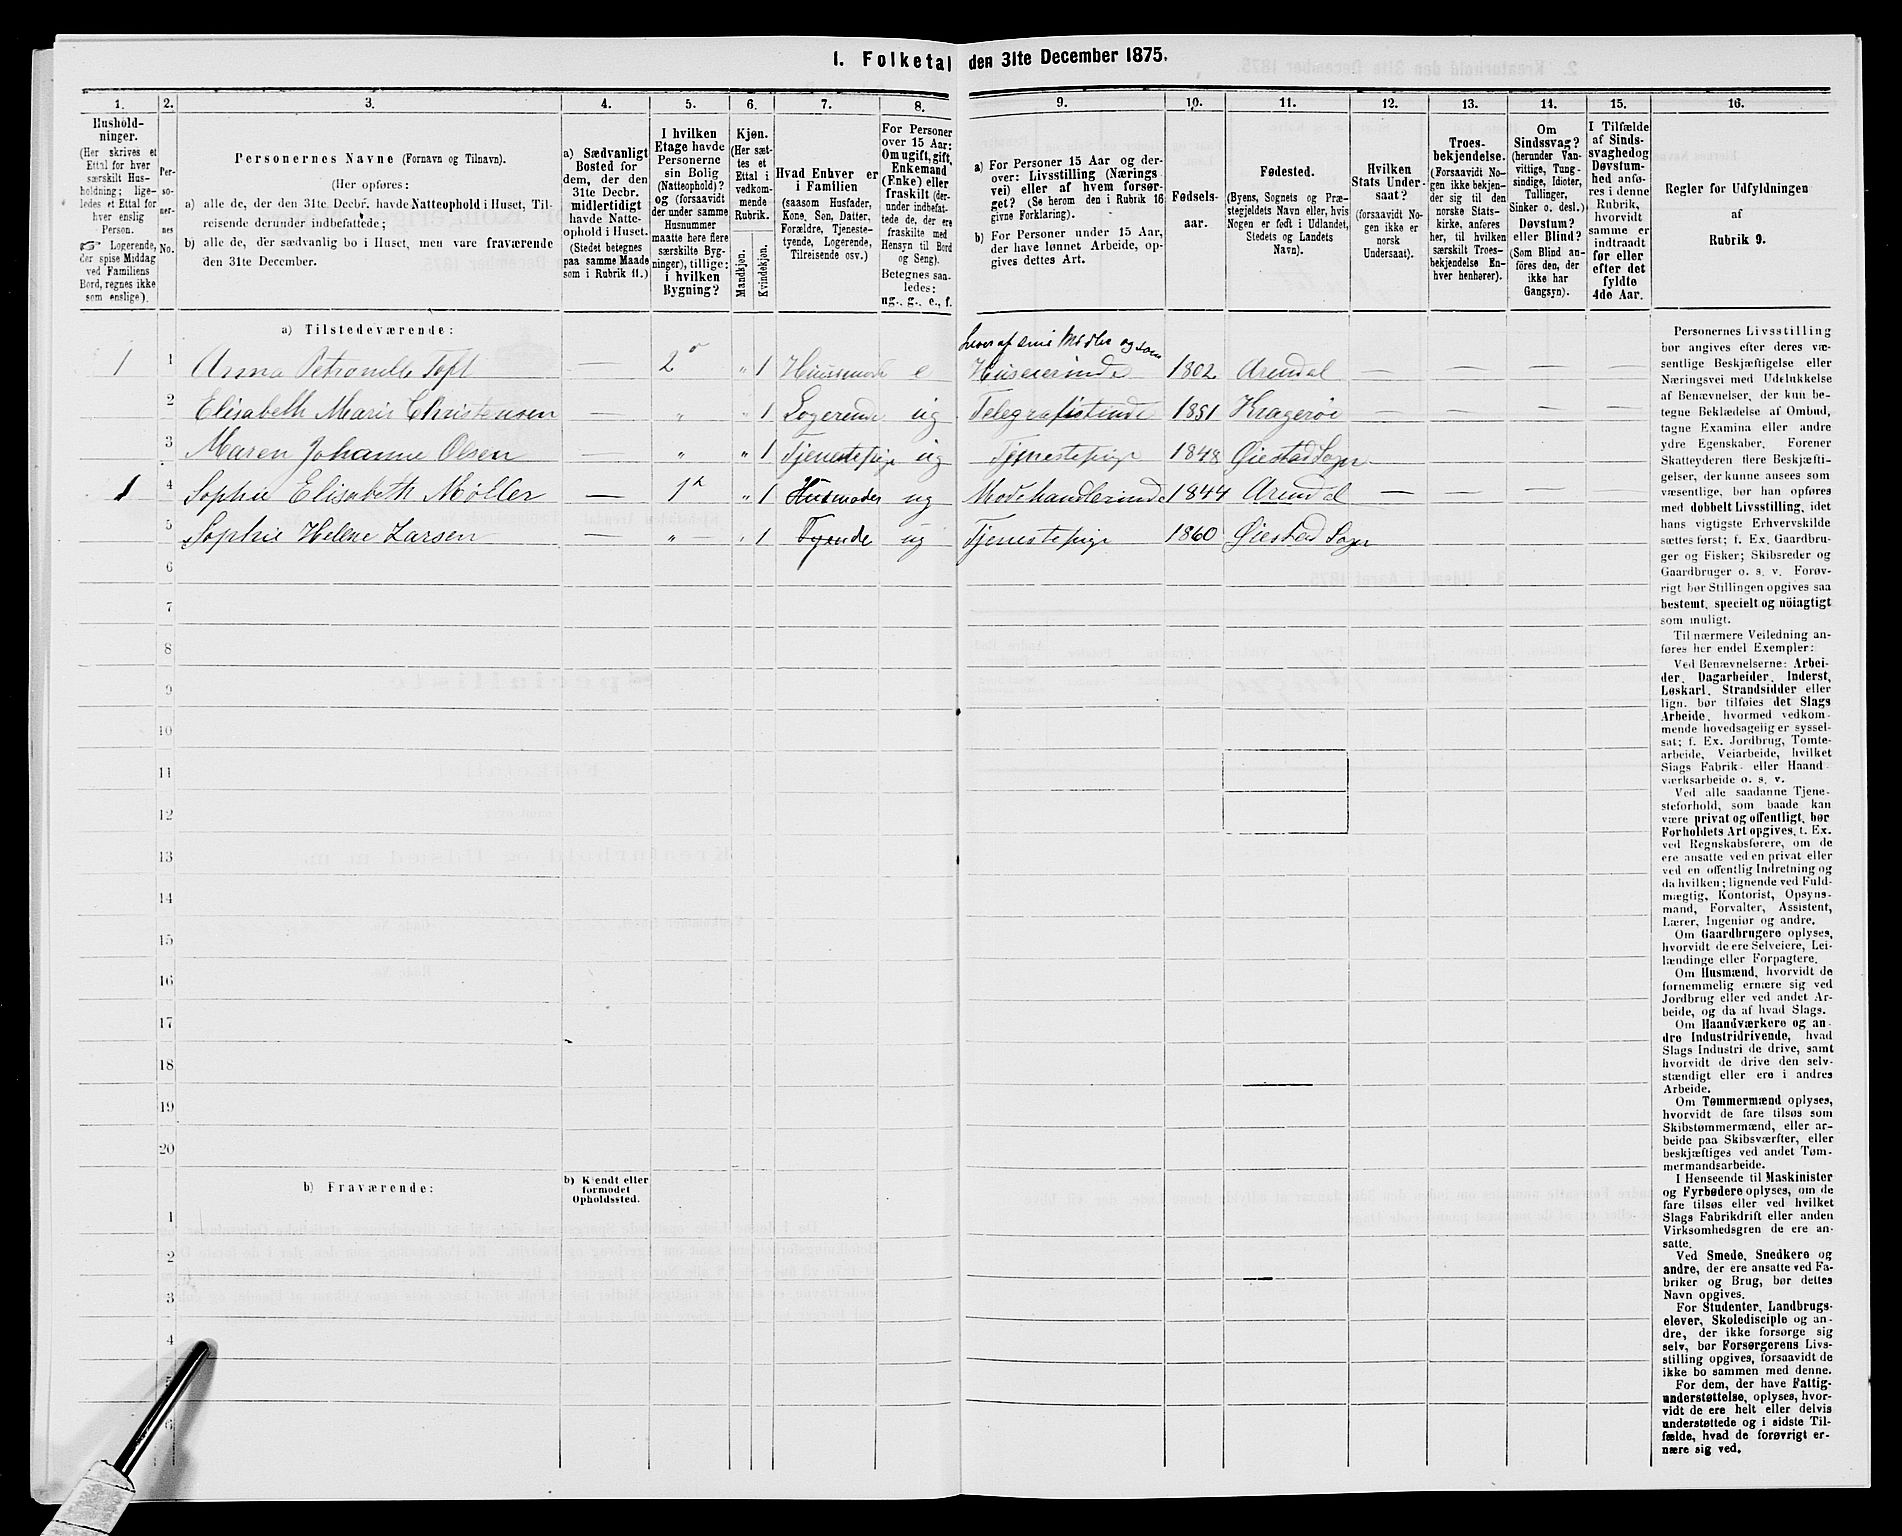 1. Folketal den 31te December 1875.
1. 2. 3. 4. 5. 6. 7. 8. 9. 10. 11. 12. 13. 14. 15. 16.
Hushold-
ninger.
(Her skrives et
Ettal for hver
særskilt Hus-
holdning; lige-
ledes et Ettal for
hver enslig
Person.
☞ Logerende,
der spise Middag
ved Familiens
Bord, regnes ikke
som enslige).
Per-
so-
ner-
nes
No.
Personernes Navne (Fornavn og Tilnavn).
(Her opføres:
a) alle de, der den 31te Decbr. havde Natteophold i Huset, Til-
reisende derunder indbefattede;
b) alle de, der sædvanlig bo i Huset, men vare fraværende
den 31te December.
a) Sædvanligt
Bosted for
dem, der den
31te Decbr.
midlertidigt
havde Natte-
ophold i Huset.
(Stedet betegnes
paa samme Maade
som i Rubrik 11.)
I hvilken
Etage havde
Personerne
sin Bolig
(Natteophold)?
og (forsaavidt
der under samme
Husnummer
maatte høre flere
særskilte Byg-
ninger), tillige:
i hvilken
Bygning?
Kjøn.
(Her sæt-
tes et
Ettal i
vedkom-
mende
Rubrik.)
Mandkjøn.
Kvindekjøn.
Hvad Enhver er
i Familien
(saasom Husfader,
Kone, Søn, Datter,
Forældre, Tjeneste-
tyende, Logerende,
Tilreisende osv.)
For Personer
over 15 Aar:
Om ugift, gift,
Enkemand
(Enke) eller
fraskilt (der-
under indbefat-
tede de, der ere
fraskilte med
Hensyn til Bord
og Seng).
Betegnes saa-
ledes:
ug., g., e., f.
a) For Personer 15 Aar og der-
over: Livsstilling (Nærings
vei) eller af hvem forsør-
get? (Se herom den i Rubrik 16
givne Forklaring).
b) For Personer under 15 Aar,
der have lønnet Arbeide, op-
gives dettes Art.
Fødsels-
aar.
Fødested.
(Byens, Sognets og Præ-
stegjeldets Navn eller, hvis
Nogen er født i Udlandet,
Stedets og Landets
Navn).
Hvilken
Stats Under-
saat?
(forsaavidt No-
gen ikke er
norsk
Undersaat).
Troes-
bekjendelse.
(Forsaavidt No-
gen ikke bekjen-
der sig til den
norske Stats-
kirke, anføres
her, til hvilken
særskilt Troes-
bekjendelse En-
hver henhører).
Om
Sindssvag?
(herunder Van-
vittige, Tung-
sindige, Idioter,
Tullinger,
Sinker o. desl.)
Døvstum?
eller Blind?
(Som Blind an-
føres den, der
ikke har
Gangsyn).
I Tilfælde
af Sinds-
svaghed og
Døvstum-
hed anfø-
res i denne
Rubrik,
hvorvidt
samme er
indtraadt
før eller
efter det
fyldte
4de Aar.
Regler for Udfyldningen
af
Rubrik 9.
a) Tilstedeværende:
Lever af sine Midler og som
1 1 Anna Petronelle Toft — 2 " 1 Husmode e Huseierinde 1802 Arendal — — — —
2 Elisabeth Marie Christensen — " " 1 Logerende ug Telegrafistinde 1851 Kragerøe — — — —
3 Maren Johanne Olsen — " " 1 Tjenestepige ug Tjenestepige 1848 Øiestad Sogn
1 4 Sophie Elisabeth Møller — 1 " 1 Husmoder ug Modehandlerinde 1844 Arendal — — — —
5 Sophie Helene Larsen — " — " 1 Tyende ug Tjenestepige 1860 Øiestad Sogn
6
7
8
9
10
11
12
13
14
15
16
17
18
19
20
b) Fraværende:
b) Kjendt eller
formodet
Opholdssted.
1
2
3
4
5
6
Personernes Livsstilling
bør angives efter deres væ-
sentlige Beskjæftigelse eller
Næringsvei med Udelukkelse
af Benævnelser, der kun be-
tegne Beklædelse af Ombud,
tagne Examina eller andre
ydre Egenskaber. Forener
Skatteyderen flere Beskjæfti-
gelser, der kunne ansees som
væsentlige, bør han opføres
med dobbelt Livsstilling, idet
hans vigtigste Erhvervskilde
sættes først; f. Ex. Gaardbru-
ger og Fisker; Skibsreder og
Gaardbruger o. s. v. Forøv-
rigt bør Stillingen opgives saa
bestemt, specielt og nöiagtigt
som muligt.
Til nærmere Veiledning an-
føres her endel Exempler:
Ved Benævnelserne: Arbei-
der, Dagarbeider, Inderst,
Løskarl, Strandsidder eller
lign. bør tilføies det Slags
Arbeide, hvormed vedkom-
mende hovedsagelig er syssel-
sat; f. Ex. Jordbrug, Tomte-
arbeide, Veiarbeide, hvilket
Slags Fabrik- eller Haand-
værksarbeide o. s. v.
Ved alle saadanne Tjene-
steforhold, som baade kan
være privat og offentligt, bør
Forholdets Art opgives, t. Ex.
ved Regnskabsførere, om de
ere ansatte ved en privat eller
ved en offentlig Indretning og
da hvilken; lignende ved Fuld-
mægtig, Kontorist, Opsyns-
mand, Forvalter, Assistent,
Lærer, Ingeniør og andre.
Om Gaardbrugere oplyses,
hvorvidt de ere Selveiere, Lei-
lændinge eller Forpagtere.
Om Husmænd, hvorvidt de
fornemmelig ernære sig ved
Jordbrug eller ved andet Ar-
beide, og da af hvad Slags.
Om Haandværkere og an-
dre Industridrivende, hvad
Slags Industri de drive, samt
hvorvidt de drive den selv-
stændigt eller ere i andres
Arbeide.
Om Tømmermænd oplyses,
hvorvidt de fare tilsøs som
Skibstømmermænd, eller ar-
beide paa Skibsværfter, eller
beskjæftiges ved andet Tøm-
mermandsarbeide.
I Henseende til Maskinister
og Fyrbødere oplyses, om de
fare tilsøs eller ved hvilket
Slags Fabrikdrift eller anden
Virksomhedsgren de ere an-
satte.
Ved Smede, Snedkere og
andre, der ere ansatte ved Fa-
briker og Brug, bør dettes
Navn opgives.
For Studenter, Landbrugs-
elever, Skoledisciple og an-
dre, der ikke forsørge sig
selv, bør Forsørgerens Livs-
stilling opgives, forsaavidt de
ikke bo sammen med denne.
For dem, der have Fattig-
understøttelse, oplyses, hvor-
vidt de ere helt eller delvis
understøttede og i sidste Til-
fælde, hvad de forøvrigt er-
nære sig ved.